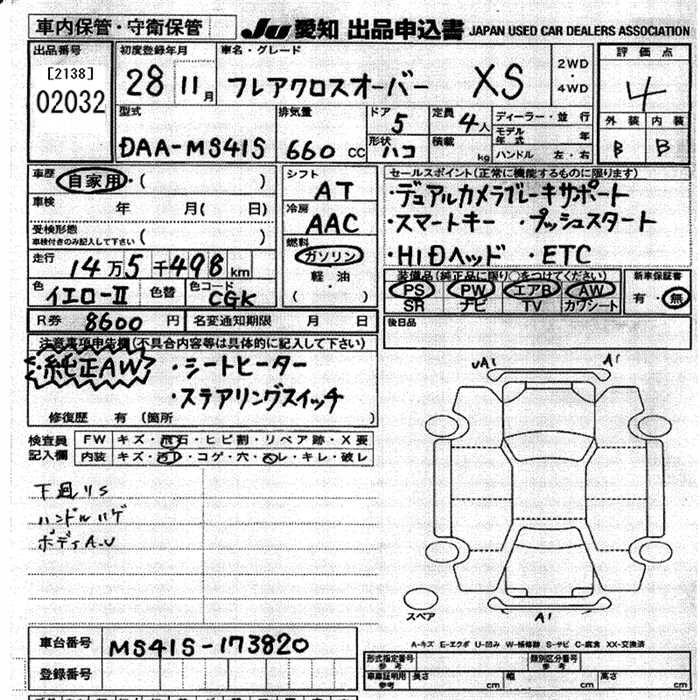 車内保管・守衛保管
JU 愛知 出品申込書 JAPAN USED CAR DEALERS ASSOCIATION
出品番号 初度登録年月 車名・グレード 評価点
[2138] 28 11月 フレアクロスオーバー XS 2WD・4WD 4
02032
型式 排気量 ドア 5 定員 4人 ディーラー・並行 外装 内装
DAA-MS41S 660 CC 形状 ハコ 積載 kg モデル年式 年 B B
ハンドル 左・右
車歴 自家用・( ) シフト AT セールスポイント(正常に機能するものに限ります)
車検 年 月( 日) 冷房 AAC ・デュアルカメラブレーキサポート
受検形態 ・スマートキー ・プッシュスタート
車検付きのみ記入して下さい ( ) 燃料 ガソリン ・HIDヘッド ・ETC
走行 14万5千498km 軽・油 ( )
装備品(純正品に限り○をつけてください) 新車保証書
色 イエロー-II 色替 色コード CGK PS PW エアB AW 有・無
SR ナビ TV カワシート
R券 8600円 名変通知期限 月 日 後日品
注意事項申告欄(不具合内容等は具体的に記入して下さい)
・純正AW ・シートヒーター
・ステアリングスイッチ
修復歴 有 (箇所 )
検査員記入欄 FW キズ・飛石・ヒビ割・リペア跡・X要
内装 キズ・汚れ・コゲ・穴・スレ・キレ・破レ
下廻りS
ハンドルハゲ
ボディA.U
UA1 A1
スペア A1
A-キズ E-エクボ U-凹み W-補修跡 S-サビ C-腐食 XX-交換済
車台番号 MS41S-173820
登録番号
形式指定番号 参考 類別区分番号 参考
車庫証明用 参考 長さ cm 幅 cm 高さ cm